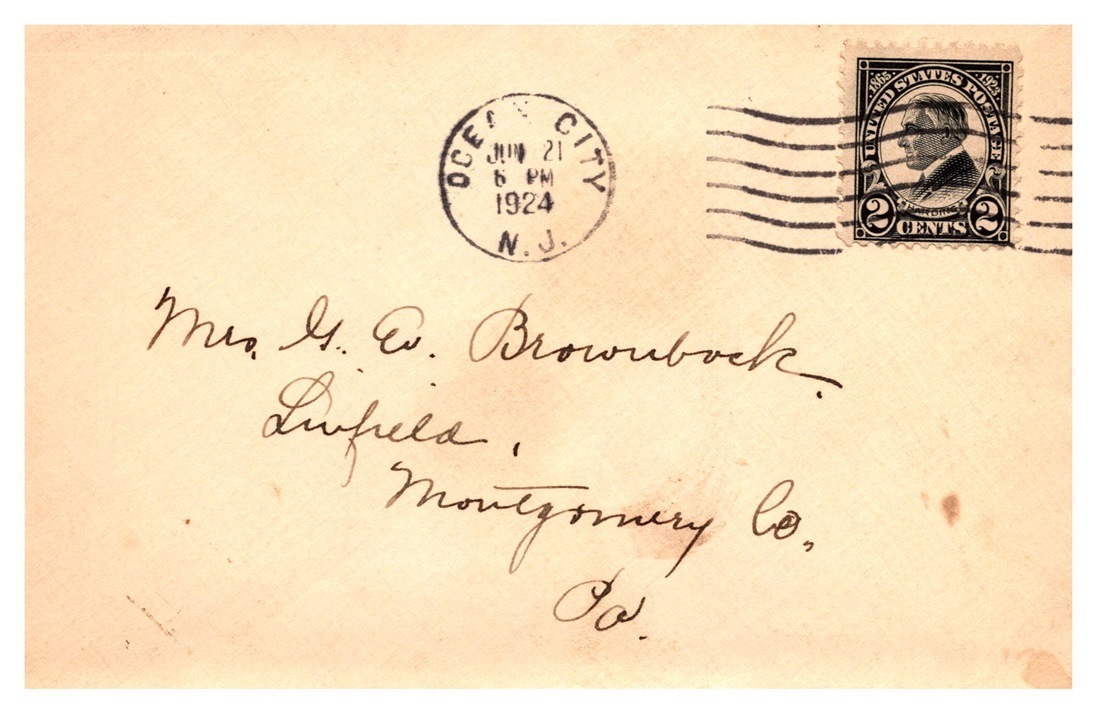 OCEAN CITY
JUN 21
6 PM
1924
N.J.
1865 UNITED STATES POSTAGE 1923
HARDING
2 CENTS 2
Mrs. G. W. Brownback.
Linfield,
Montgomery Co.,
Pa.